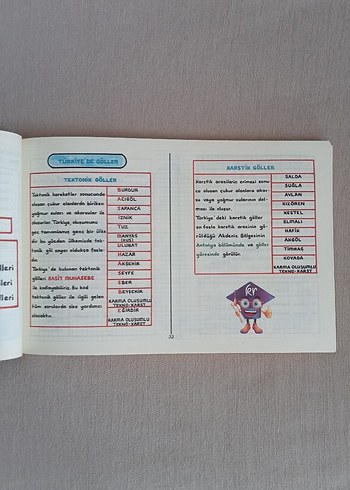 TÜRKİYE'DE GÖLLER
TEKTONİK GÖLLER
Tektonik hareketler sonucunda
oluşan çukur alanlarda biriken
yağmur suları ve akarsular ile
oluşurlar. Türkiye, oluşumunu
geç tamamlamış genç bir ülke
dir bu yüzden ülkemizde tek-
tonik göl sayısı oldukça fazla-
dır.
Türkiye'de bulunan tektonik
gölleri BASİT MUHASEBE
ile kodlayabiliriz. Bu kod
tektonik göller ile ilgili gelen
tüm sorularda size yardımcı
olacaktır.
BURDUR
ACIGÖL
SAPANCA
İZNİK
TUZ
MANYAS
(KUŞ)
ULUBAT
HAZAR
AKŞEHİR
SEYFE
EBER
BEYŞEHİR
KARMA OLUŞUMLU
TEKNO-KARST
EĞİRDİR
KARMA OLUŞUMLU
TEKNO-KARST
KARSTİK GÖLLER
Karstik arazilerin erimesi sonu
cu oluşan çukur alanlara akar
su veya yağmur sularının dol-
ması ile oluşur.
Türkiye'deki karstik göller
en fazla karstik arazinin gö-
rüldüğü Akdeniz Bölgesinin
Antalya bölümünde ve göller
yöresinde görülür.
SALDA
SUĞLA
AVLAN
KIZÖREN
KESTEL
ELMALI
HAFİK
AKGÖL
TİMRAŞ
KOVADA
KARMA OLUŞUMLU
TEKNO-KARST
33
lleri
ileri
lleri